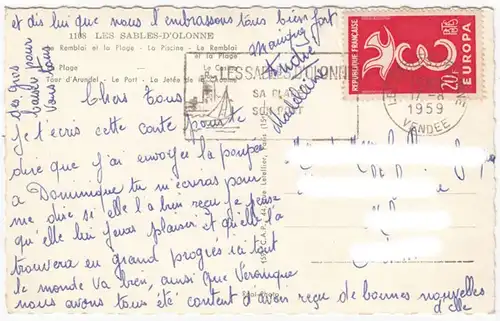 et dis lui que nous l'embrassons tous bien fort
1108 LES SABLES-D'OLONNE
Remblai et la Plage - La Piscine - Le Remblai
et la Plage
Plage - Le Casino
Tour d'Arundel - Le Port - La Jetée
des gros
baiser pour
vous tous
Monique
André
LES SABLES D'OLONNE
SA PLAGE
SON PORT
17-8
1959
VENDEE
REPUBLIQUE FRANÇAISE
20F
EUROPA
Chers Tous
Je t'ecris cette carte pour te
dire que j'ai envoyer la poupée
a Dominique tu m'ecriras pour
me dire si elle l'a bien reçu je pense
qu'elle lui feras plaisir et qu'elle la
trouvera en grand progrès ici tout
le monde va bien, ainsi que Véronique
nous avons tous été content d'avoir reçu de bonnes nouvelles
d'elle